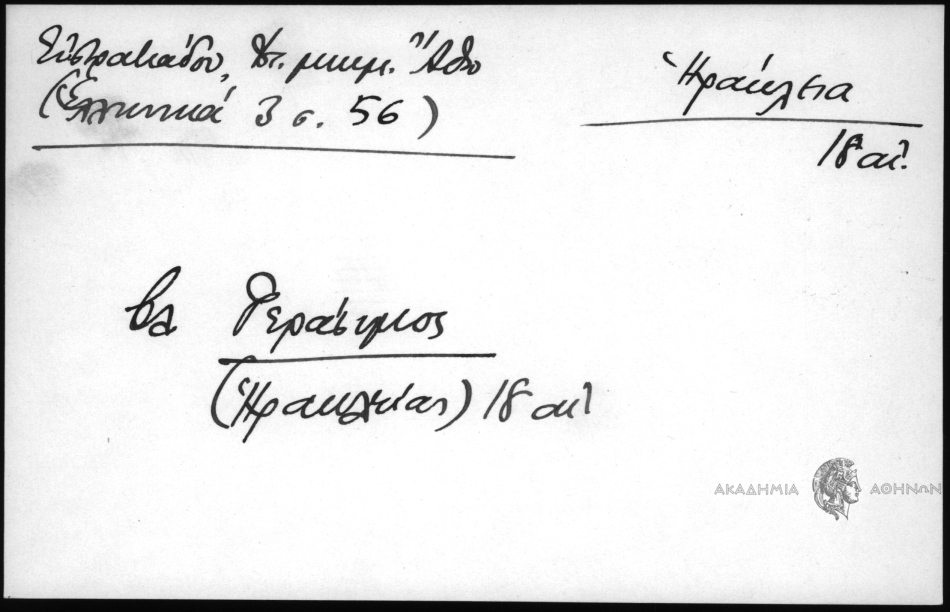 Εὐστρατιάδου, Ἱστ. μνημ. Ἄθω
(Ἑλληνικά 3 σ. 56)
Ἡράκλεια
18 αἰ.
βλ Γεράσιμος
(Ἡρακλείας) 18 αἰ
ΑΚΑΔΗΜΙΑ ΑΘΗΝΩΝ